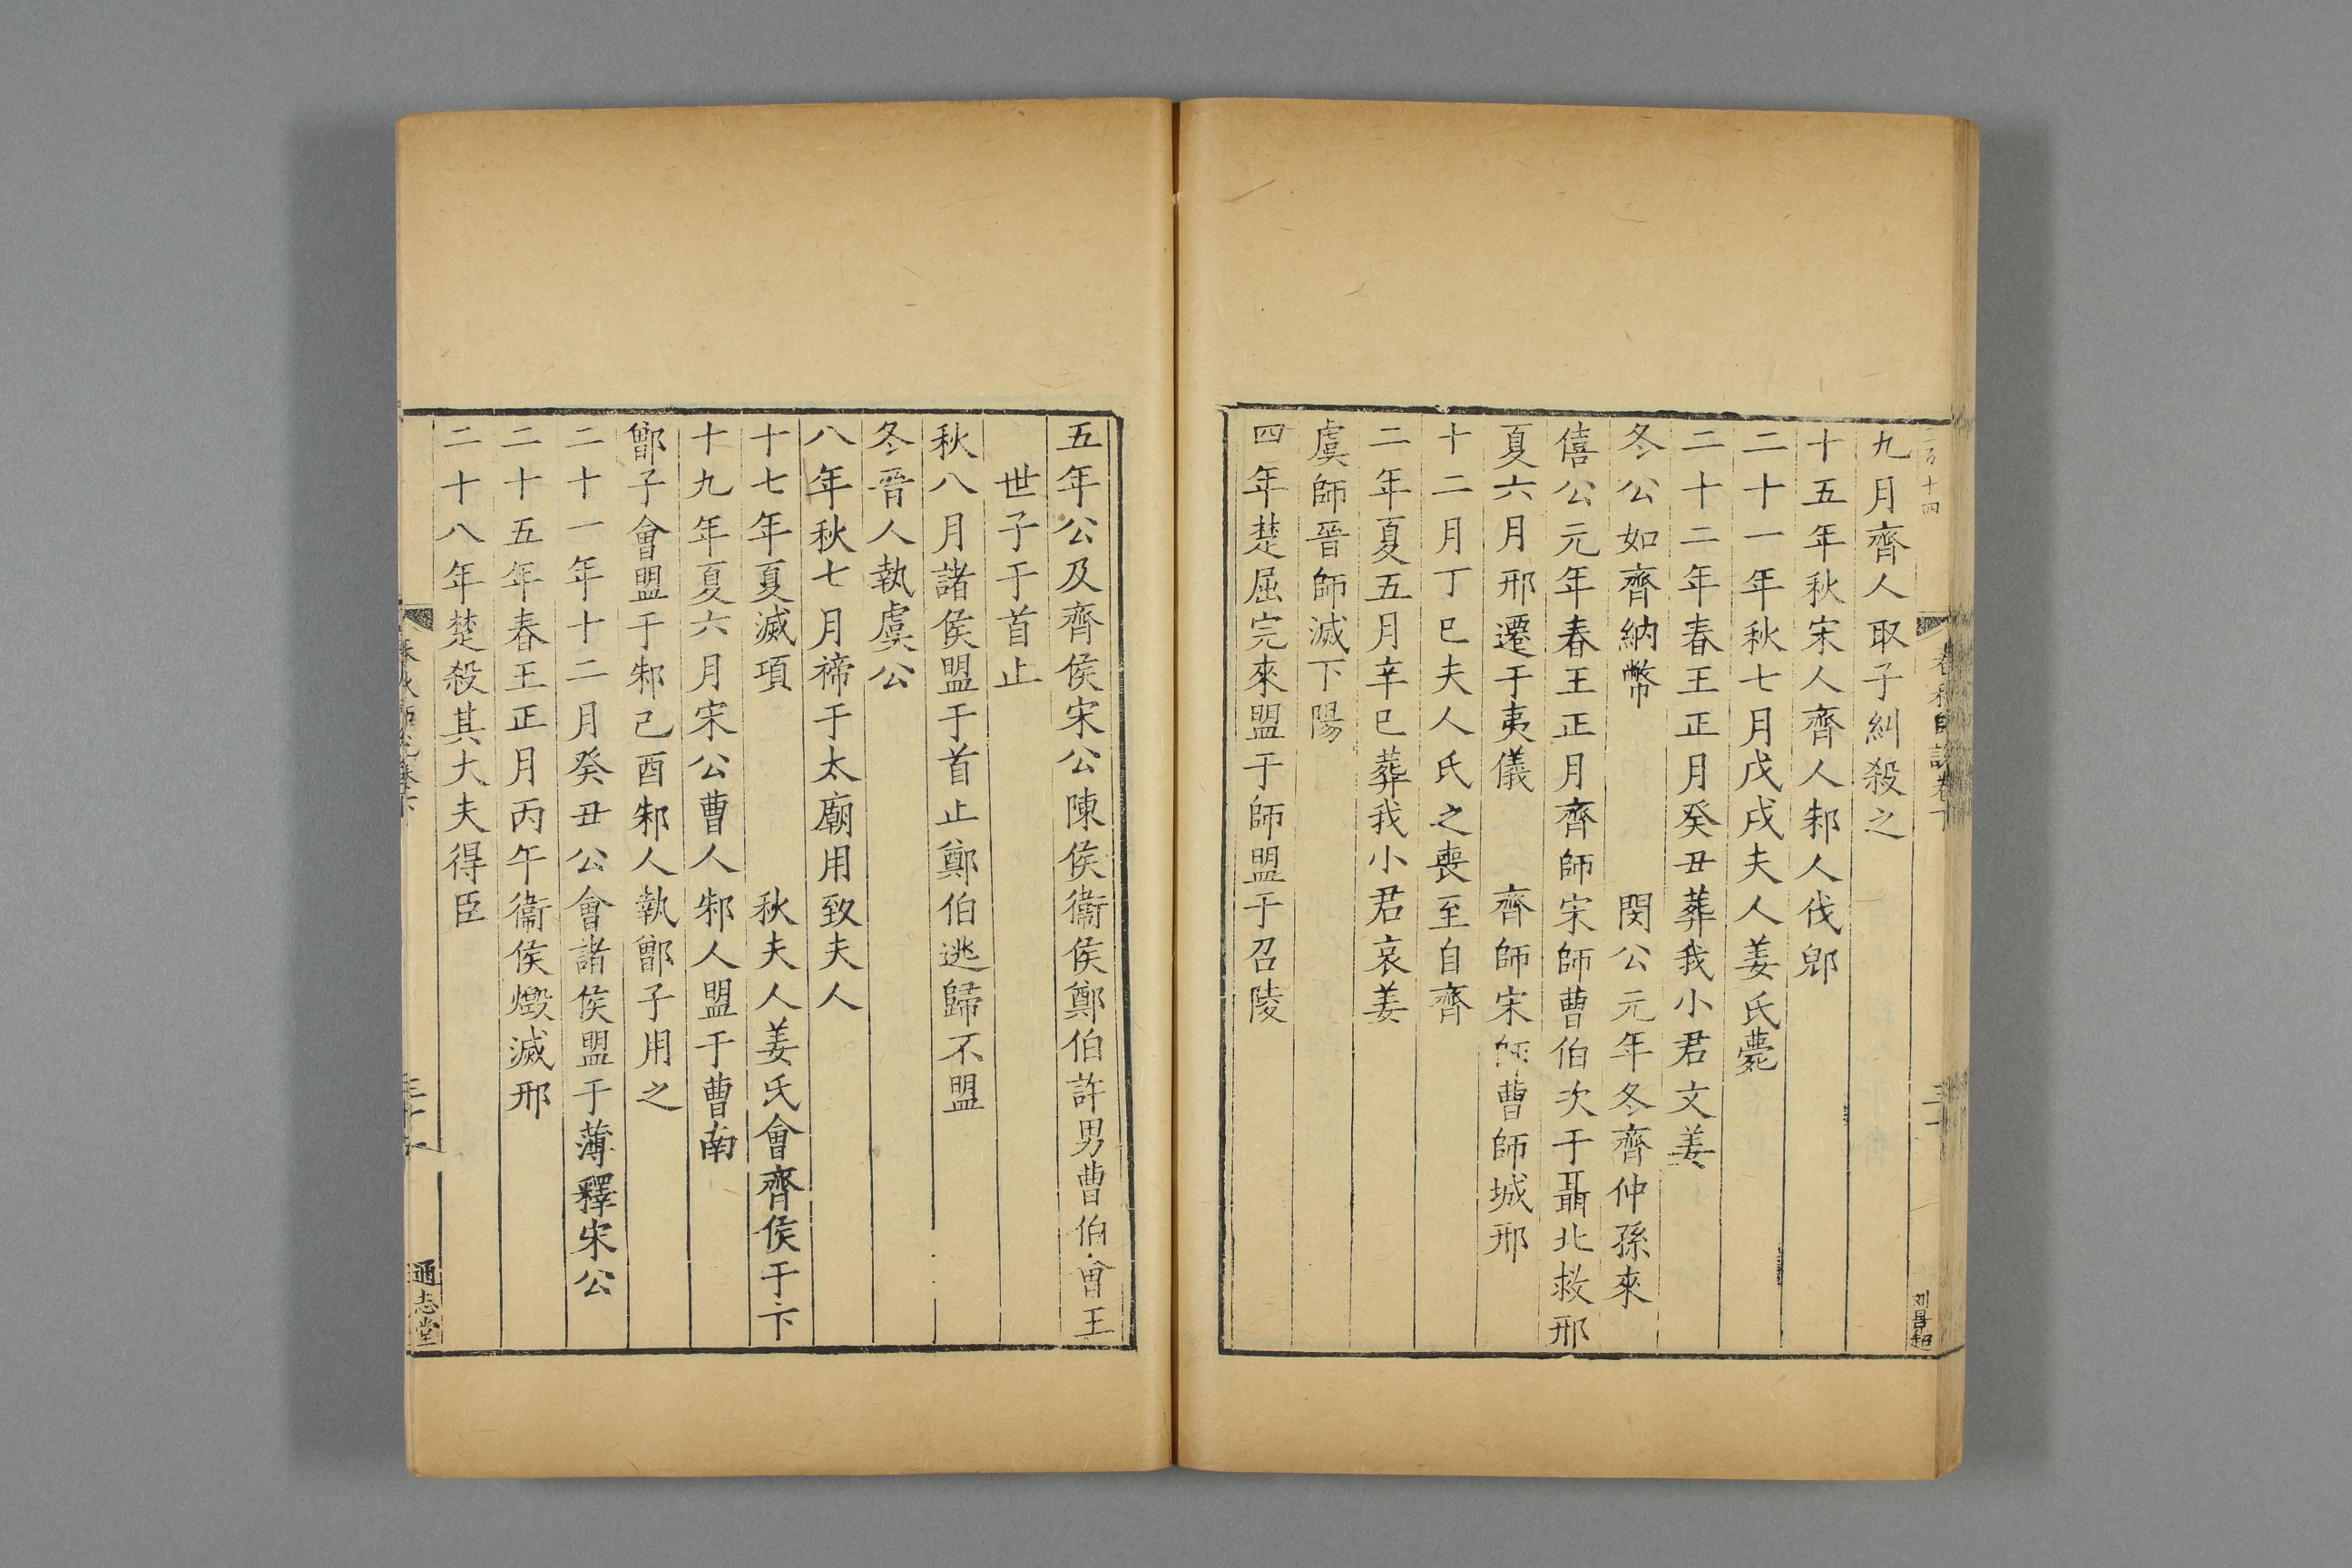 九月齊人取子糾殺之
十五年秋宋人齊人邾人伐郳
二十一年秋七月戊戌夫人姜氏薨
二十二年春王正月癸丑葬我小君文姜
冬公如齊納幣　閔公元年冬齊仲孫來
僖公元年春王正月齊師宋師曹伯次于聶北救邢
夏六月邢遷于夷儀　齊師宋師曹師城邢
十二月丁巳夫人氏之喪至自齊
二年夏五月辛巳葬我小君哀姜
虞師晉師滅下陽
四年楚屈完來盟于師盟于召陵
五年公及齊侯宋公陳侯衞侯鄭伯許男曹伯會王
世子于首止
秋八月諸侯盟于首止鄭伯逃歸不盟
冬晉人執虞公
八年秋七月禘于太廟用致夫人
十七年夏滅項　秋夫人姜氏會齊侯于卞
十九年夏六月宋公曹人邾人盟于曹南
鄫子會盟于邾己酉邾人執鄫子用之
二十一年十二月癸丑公會諸侯盟于薄釋宋公
二十五年春王正月丙午衞侯燬滅邢
二十八年楚殺其大夫得臣
春秋師說卷下
通志堂